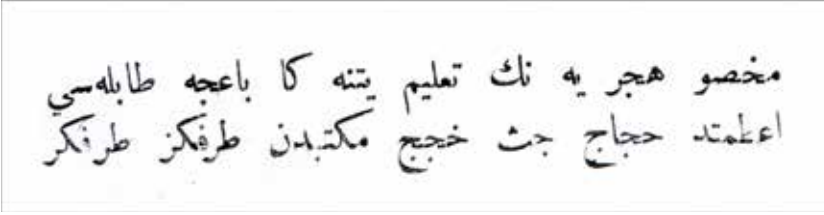 مخصو هجر يه نك تعليم يتنه كا باعجه طابله‌سي
اعطمتد حجاج جث خجج مكتبدن طرفكز طرفكر